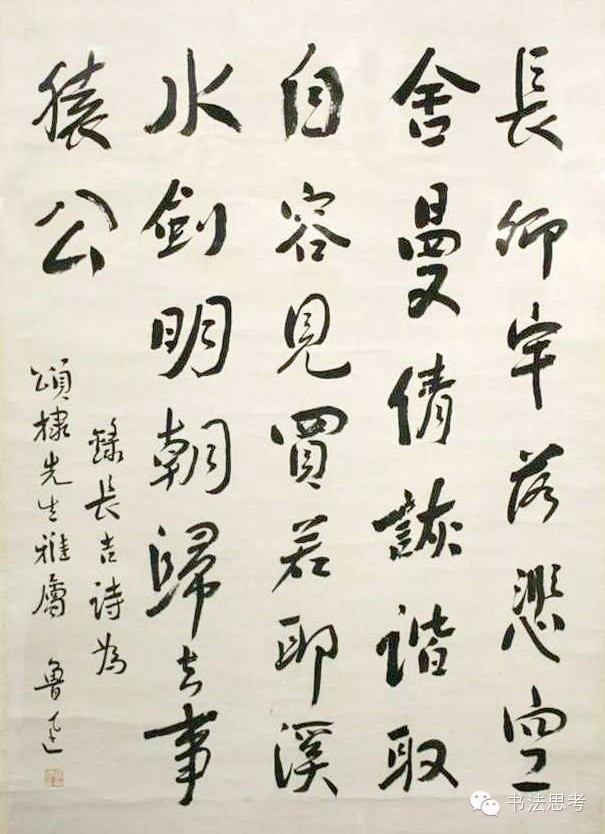 長卿牢落悲空
舍曼倩詼諧取
自容見買若耶溪
水劍明朝歸去事
猿公
錄長吉詩為
頌棣先生雅屬 魯迅
书法思考